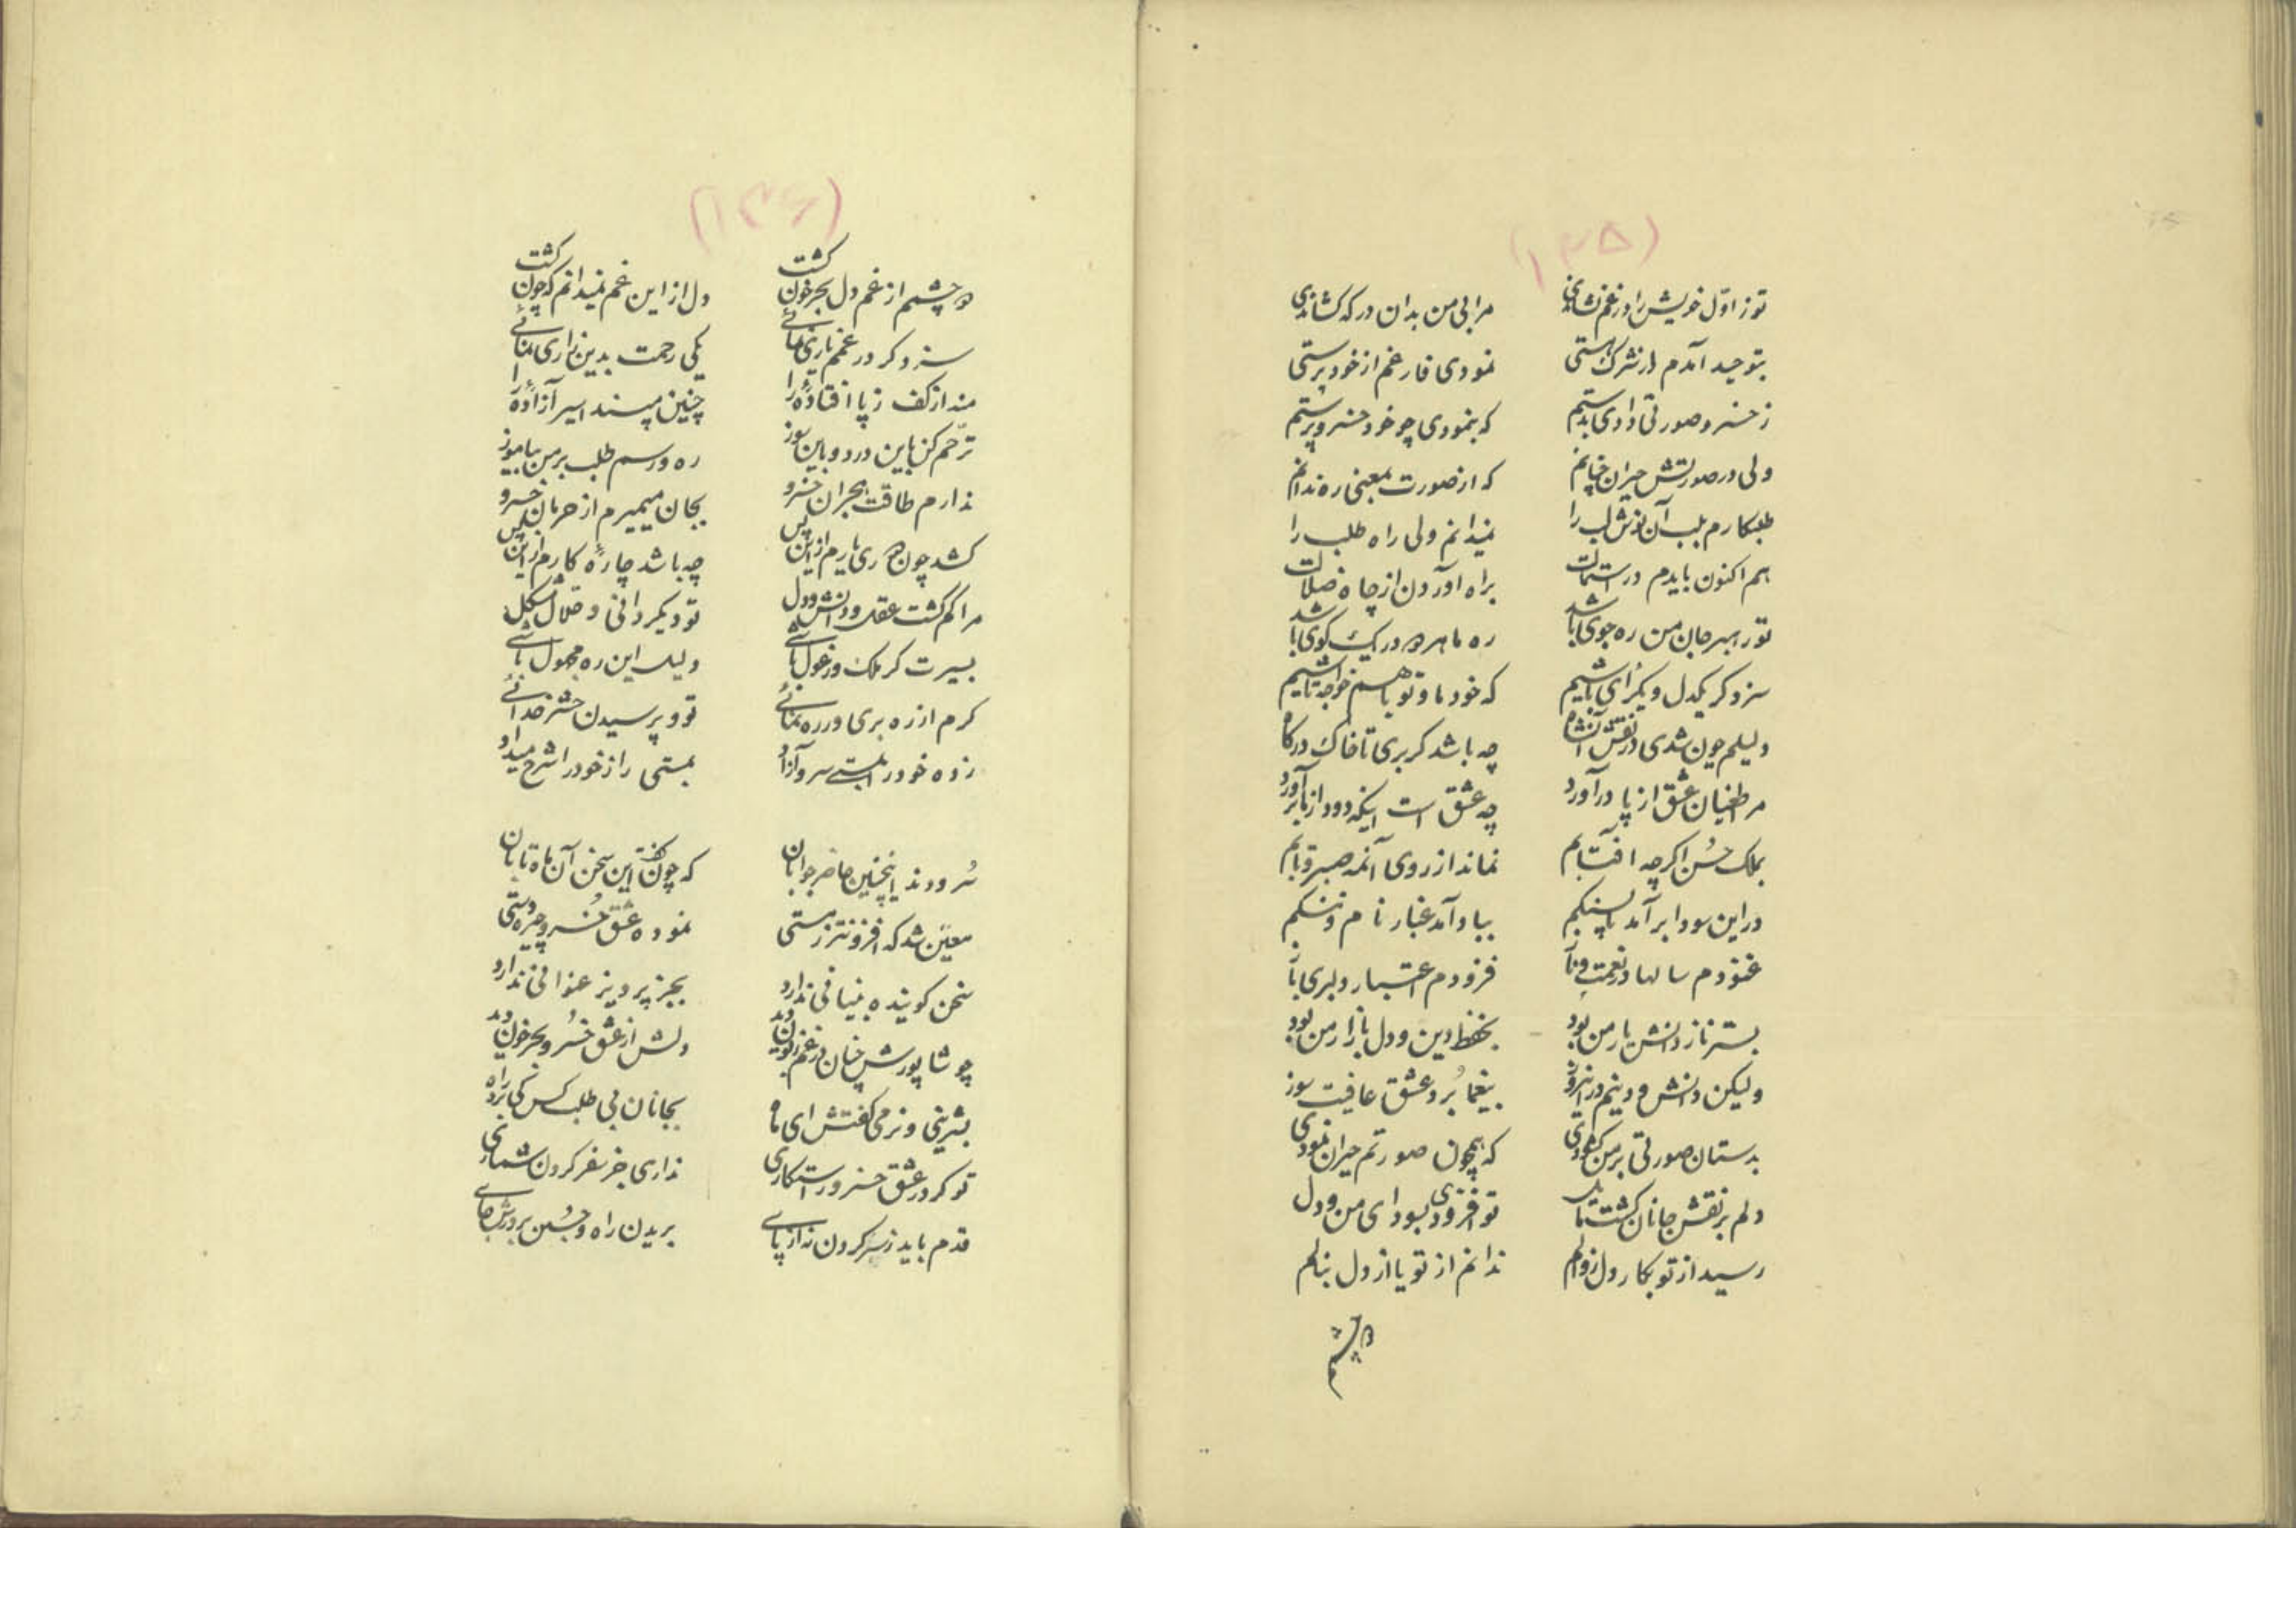 (۱۳۵)
تو ز اوّل خویش را در غم نشاندی مرا بی من بدان درکه کشاندی
بتوحید آمدم از شرک هستی نمودی فارغم از خود پرستی
ز خسرو صورتی دادی بدستم که بنمودی چو خود خسرو پرستم
ولی در صورتش حیران چنانم که از صورت بمعنی ره ندانم
طلبکارم بلب آن نوش لب را نمیدانم ولی راه طلب را
هم اکنون بایدم در استمالت براه آوردن از چاه ضلالت
تو رهبر جان من ره جوی باشد ره ما هر دو در یک کوی باشد
سزد کر یکدل و یکرای باشیم که خود ما و تو با هم خواجه تاشیم
دلیلم چون شدی در نقش آنشاه چه باشد کر بری تا خاک درکاه
مر اطغیان عشق از پا درآورد چه عشق است اینکه دود از ما برآورد
بملک حسن اکرچه افتابم نماند از روی آنمه صبر و تابم
در این سودا برآمد پا بسنکم بباد آمد غبار نام و ننکم
غنودم سالها در نعمت و ناز فزودم اعتبار دلبری باز
بستر ناز دانش یار من بود بحفظ دین و دل بازار من بود
ولیکن دانش و دینم در امروز بیغما بُرد عشق عافیت سوز
بدستان صورتی بر من کشودی که همچون صورتم حیران نمودی
دلم بر نقش جانان کشت مایل تو افزودی بسودای من و دل
رسید از تو بکار دل زوالم ندانم از تو یا از دل بنالم
دو چشم
(۱۳۶)
دو چشمم از غم دل بحر خون کشت دل از این غم نمیدانم که چون کشت
سزد کر در غمم یاری نمائی یکی رحمت بدین زاری نمائی
منه از کف ز پا افتادهٔ را چنین مپسند اسیر آزادهٔ را
ترّحم کن باین درد و باین سوز ره و رسم طلب بر من بیاموز
ندارم طاقت هجران خسرو بجان میمیرم از حرمان خسرو
کشد چون دوری یارم از این پس چه باشد چارهٔ کارم از این پس
مرا کم کشت عقل و دانش و دل تو دیکر دانی و حلال مشکل
بسیرت کر ملک ور غول باشی دلیل این ره مجهول باشی
کرم از ره بری ور ره نمائی تو و پرسیدن حشر خدائی
زده خود را بمستی سرو آزاد بمستی راز خود را شرح میداد
سُرودند اینچنین حاضر جوابان که چون کفت این سخن آن ماه تابان
معیّن شد که افزونتر ز مستی نموده عشق خُسرو چیره دستی
سخن کوینده بنیانی ندارد بجز پرویز عنوانی ندارد
چو شاپورش چنان در غم زبون دید دلش از عشق خُسرو بحر خون دید
بشیرینی و نرمی کفتش ای ماه بجانان بی طلب کس کی برد راه
تو کر در عشق خسرو راستکاری نداری جز سفر کردن شماری
قدم باید ز سر کردن نه از پای بریدن راه و جُستن بر درش جای